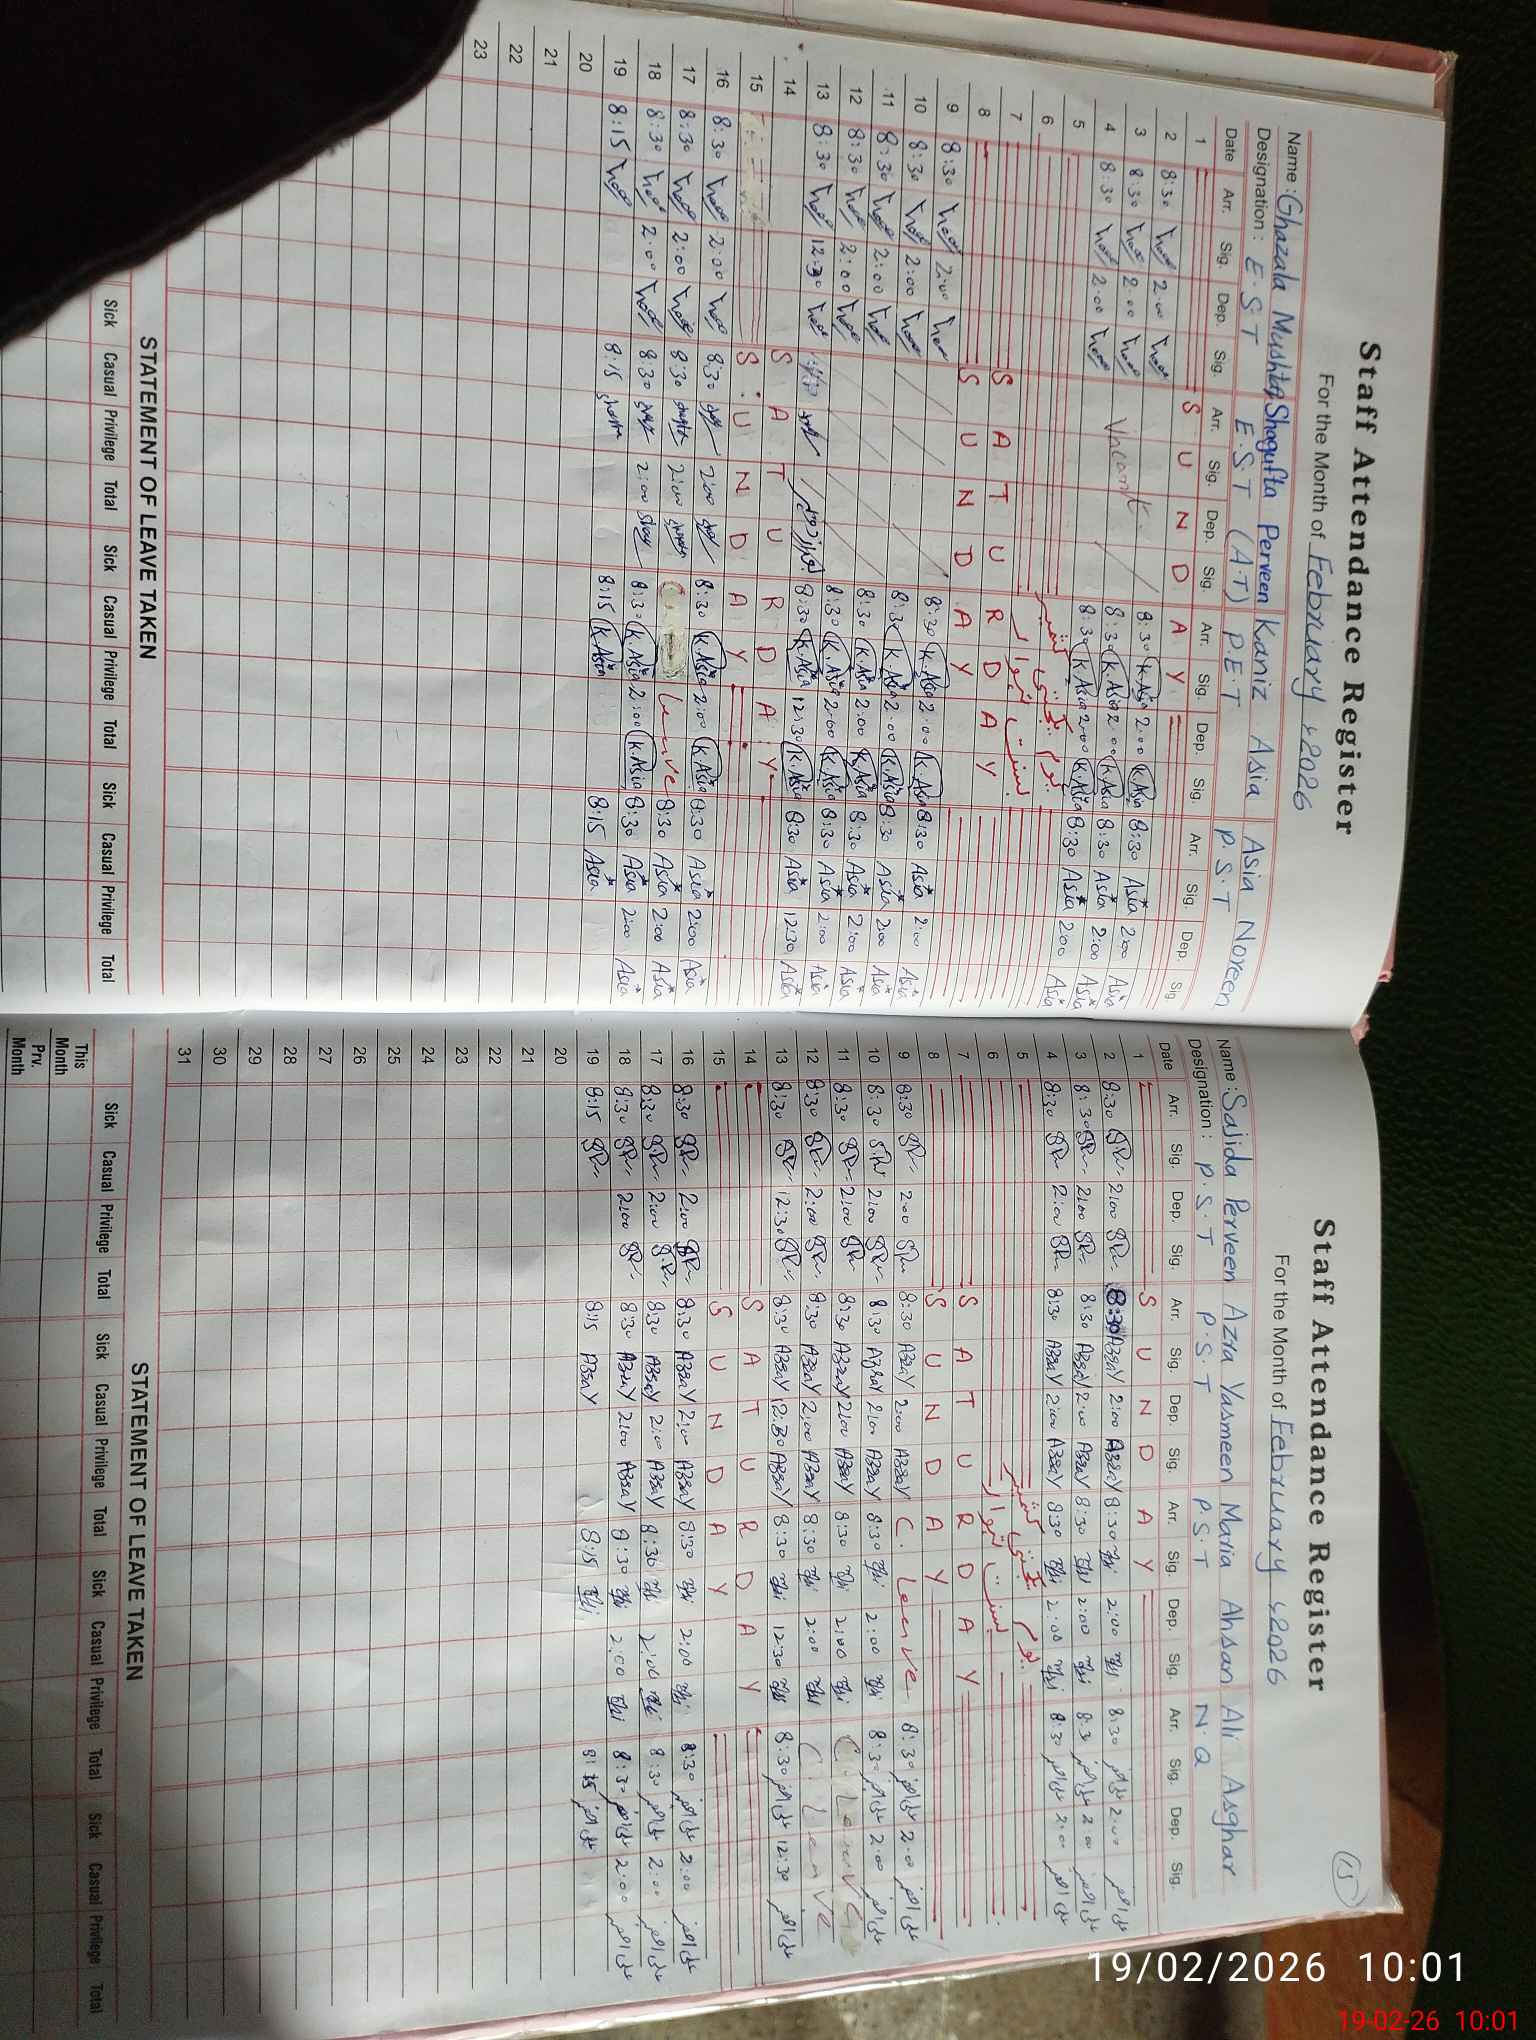 Staff Attendance Register
For the Month of February 2026
Name : Ghazala Mushtaq Shagufta Perveen Kaniz Asia Asia Noreen
Designation : E.S.T E.S.T (A.T) P.E.T P.S.T
Date Arr. Sig. Dep. Sig. Arr. Sig. Dep. Sig. Arr. Sig. Dep. Sig. Arr. Sig. Dep. Sig.
1 S U N D A Y
2 8:30 2:00 Vacant 8:30 K.Asia 2:00 K.Asia 8:30 Asia 2:00 Asia
3 8:30 2:00 8:30 K.Asia 2:00 K.Asia 8:30 Asia 2:00 Asia
4 8:30 2:00 8:30 K.Asia 2:00 K.Asia 8:30 Asia 2:00 Asia
5 یوم یکجہتی کشمیر
6 بسنت تہوار
7 S A T U R D A Y
8 S U N D A Y
9 8:30 2:00 8:30 K.Asia 2:00 K.Asia 8:30 Asia 2:00 Asia
10 8:30 2:00 8:30 K.Asia 2:00 K.Asia 8:30 Asia 2:00 Asia
11 8:30 2:00 8:30 K.Asia 2:00 K.Asia 8:30 Asia 2:00 Asia
12 8:30 2:00 8:30 K.Asia 2:00 K.Asia 8:30 Asia 2:00 Asia
13 8:30 12:30 8:30 K.Asia 12:30 K.Asia 8:30 Asia 12:30 Asia
14 S A T U R D A Y
15 S U N D A Y
16 8:30 2:00 8:30 2:00 8:30 K.Asia 2:00 K.Asia 8:30 Asia 2:00 Asia
17 8:30 2:00 8:30 2:00 Leave 8:30 Asia 2:00 Asia
18 8:30 2:00 8:30 2:00 8:30 K.Asia 2:00 K.Asia 8:30 Asia 2:00 Asia
19 8:15 8:15 8:15 K.Asia 8:15 Asia
20
21
22
23
STATEMENT OF LEAVE TAKEN
Sick Casual Privilege Total Sick Casual Privilege Total Sick Casual Privilege Total
15
Staff Attendance Register
For the Month of February 2026
Name : Sajida Perveen Azra Yasmeen Maria Ahsan Ali Asghar
Designation : P.S.T P.S.T P.S.T N.Q
Date Arr. Sig. Dep. Sig. Arr. Sig. Dep. Sig. Arr. Sig. Dep. Sig. Arr. Sig. Dep. Sig.
1 S U N D A Y
2 8:30 2:00 8:30 AzraY 2:00 AzraY 8:30 2:00 8:30 2:00
3 8:30 2:00 8:30 AzraY 2:00 AzraY 8:30 2:00 8:3 2:00
4 8:30 2:00 8:30 AzraY 2:00 AzraY 8:30 2:00 8:30 2:00
5 یوم یکجہتی کشمیر
6 بسنت تہوار
7 S A T U R D A Y
8 S U N D A Y
9 8:30 2:00 8:30 AzraY 2:00 AzraY C. Leave 8:30 2:00
10 8:30 2:00 8:30 AzraY 2:00 AzraY 8:30 2:00 8:30 2:00
11 8:30 2:00 8:30 AzraY 2:00 AzraY 8:30 2:00 C. Leave
12 8:30 2:00 8:30 AzraY 2:00 AzraY 8:30 2:00 C. Leave
13 8:30 12:30 8:30 AzraY 12:30 AzraY 8:30 12:30 8:30 12:30
14 S A T U R D A Y
15 S U N D A Y
16 8:30 2:00 8:30 AzraY 2:00 AzraY 8:30 2:00 8:30 2:00
17 8:30 2:00 8:30 AzraY 2:00 AzraY 8:30 2:00 8:30 2:00
18 8:30 2:00 8:30 AzraY 2:00 AzraY 8:30 2:00 8:30 2:00
19 8:15 8:15 AzraY 8:15 8:15
20
21
22
23
24
25
26
27
28
29
30
31
STATEMENT OF LEAVE TAKEN
Sick Casual Privilege Total Sick Casual Privilege Total Sick Casual Privilege Total Sick Casual Privilege Total
This Month
Prv. Month
19/02/2026 10:01
19-02-26 10:01